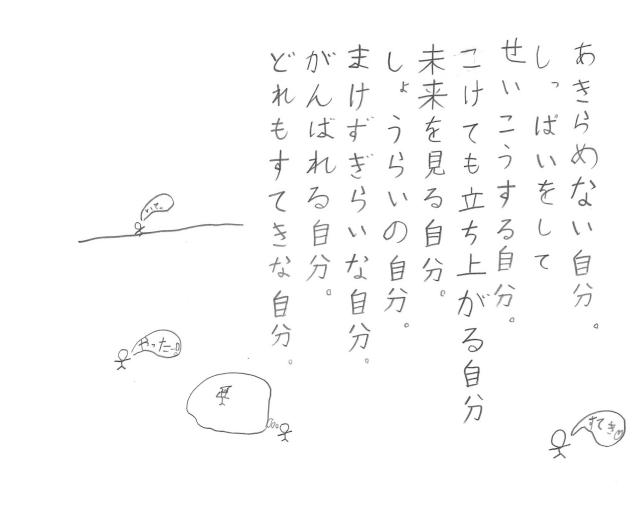 あきらめない自分。
しっぱいをして
せいこうする自分。
こけても立ち上がる自分
未来を見る自分。
しょうらいの自分。
まけずぎらいな自分。
がんばれる自分。
どれもすてきな自分。
いて。
やったー!!
すてき